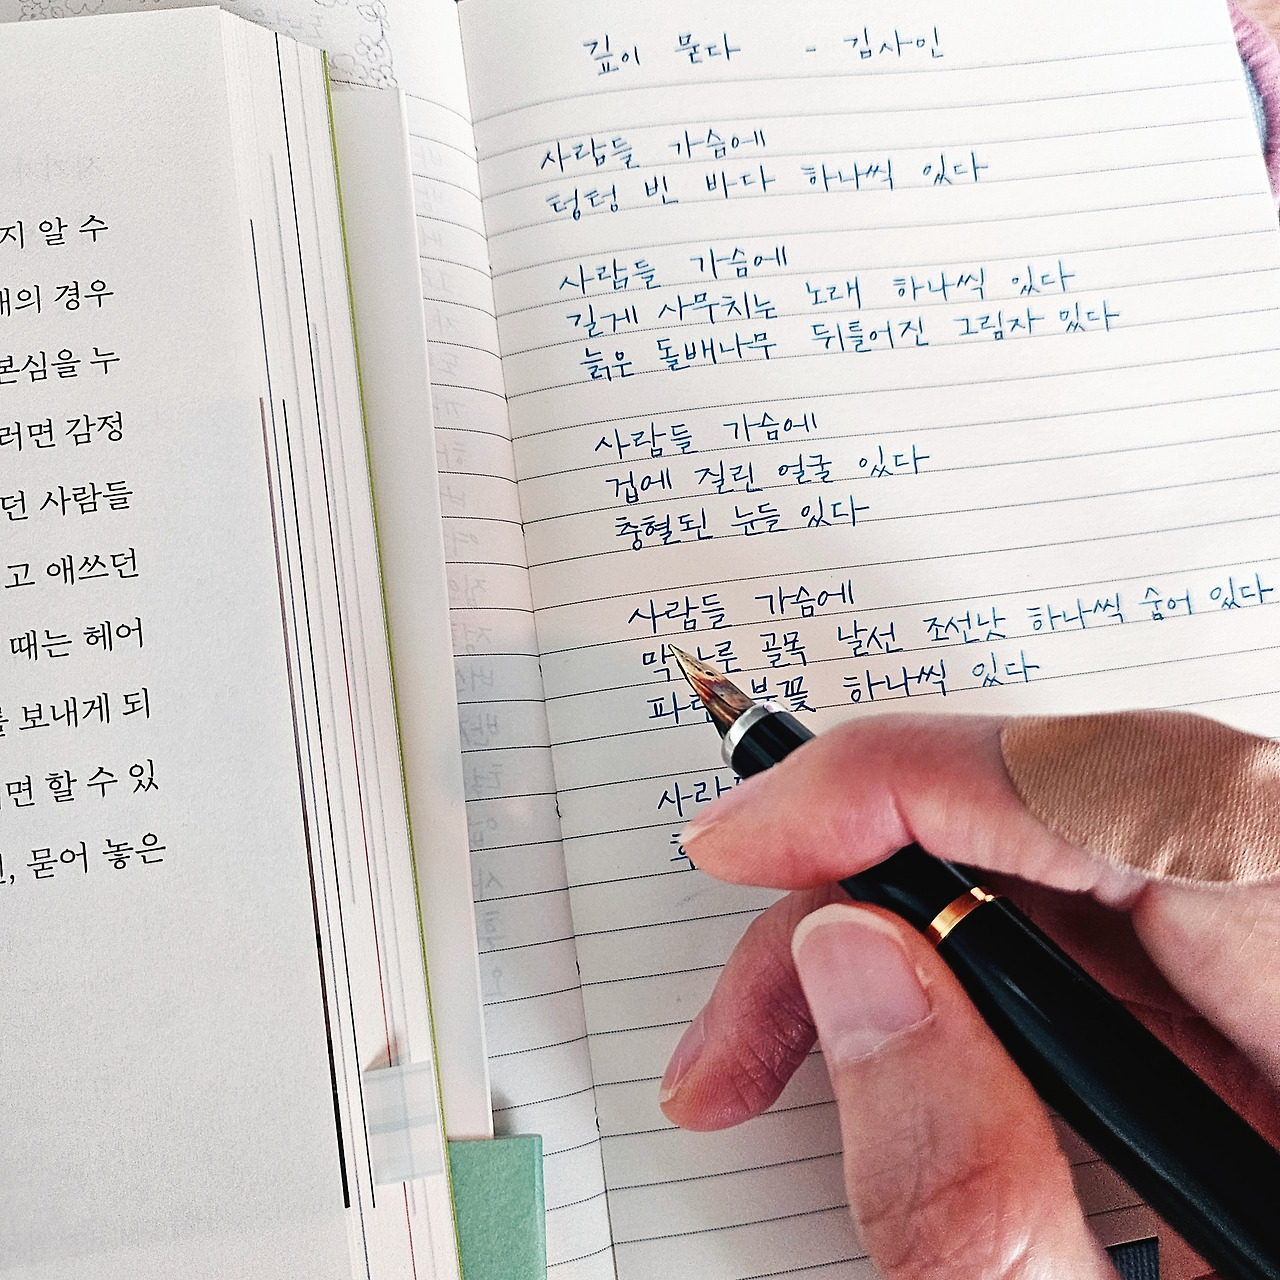 지 알 수
의 경우
본심을 누
러면 감정
던 사람들
고 애쓰던
때는 헤어
보내게 되
면 할 수 있
묻어 놓은
깊이 묻다 - 김사인
사람들 가슴에
텅텅 빈 바다 하나씩 있다
사람들 가슴에
길게 사무치는 노래 하나씩 있다
늙은 돌배나무 뒤틀어진 그림자 있다
사람들 가슴에
겁에 질린 얼굴 있다
충혈된 눈들 있다
사람들 가슴에
골목 날선 조선낫 하나씩 숨어 있다
불꽃 하나씩 있다